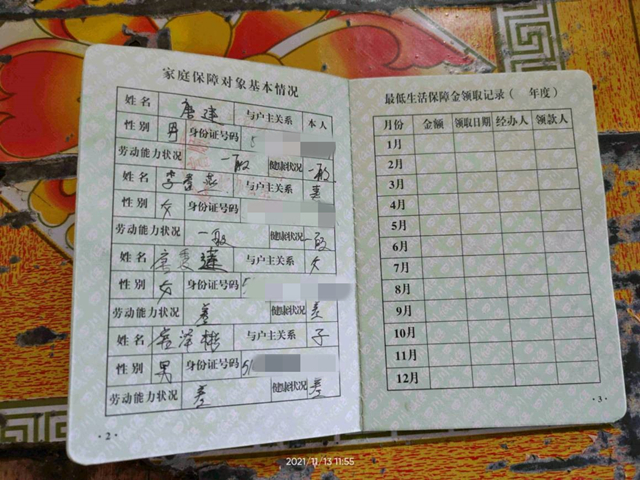 家庭保障对象基本情况
姓名 唐建 与户主关系 本人
性别 男 身份证号码 5
劳动能力状况 一般 健康状况 一般
姓名 李 与户主关系 妻
性别 女 身份证号码
劳动能力状况 一般 健康状况 一般
姓名 与户主关系 女
性别 女 身份证号码 5
劳动能力状况 差 健康状况 差
姓名 与户主关系 子
性别 男 身份证号码 51
劳动能力状况 差 健康状况 差
·2·
最低生活保障金领取记录( 年度)
月份 金额 领取日期 经办人 领款人
1月
2月
3月
4月
5月
6月
7月
8月
9月
10月
11月
12月
·3·
2021/11/13 11:55